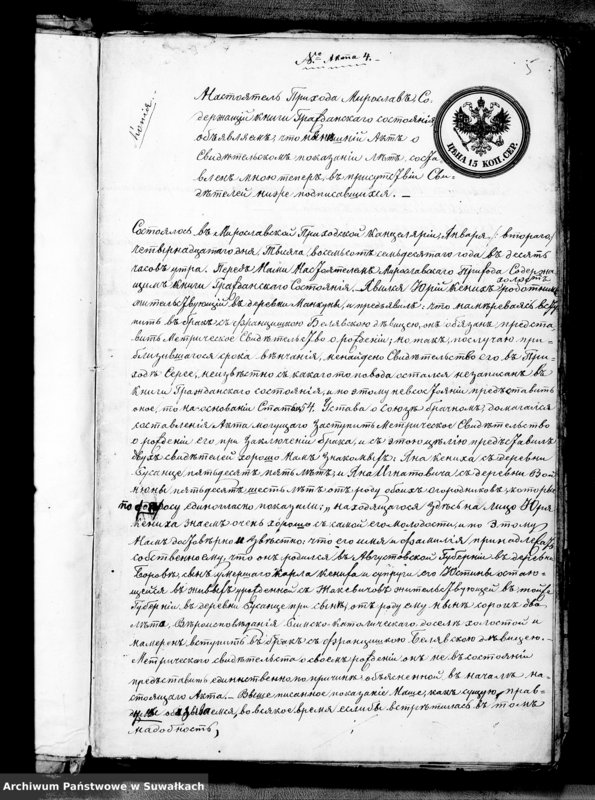 № Акта 4.
5
Копія
ЦѢНА 15 КОП. СЕР.
Настоятель Прихода Мирославъ, Со-
держащій книги Гражданскаго состоянія
объявляемъ, что Актъ о
Свидѣтельскомъ показаніи лѣтъ,
вленъ мною теперь, въ присутствіи Сви-
дѣтелей ниже подписавшихся. —
Состоялось въ Мирославской Приходской Канцеляріи, Января /: втораго/
четырнадцатаго дня Тысяча восемьсотъ семьдесятаго года въ десять
часовъ утра. Передъ Нами Настоятелемъ Мирославскаго Прихода Содержа-
щимъ книги Гражданскаго Состоянія. Явился Юрій Кенихъ
холостъ
жительствующій въ деревни и предъявилъ: что намѣреваясь всту-
пить въ бракъ съ Францишкою Белявскою дѣвицею, онъ обязанъ предста-
вить Метрическое Свидѣтельство о рожденіи; но такъ, по случаю при-
близившагося срока вѣнчанія, ненайдено Свидѣтельство его въ При-
ходѣ Сереѣ, неизвѣстно съ какаго то повода остался незаписанъ въ
Книги Гражданскаго состоянія, и по этому невсостояніи представить
оное, то на основаніи Статьи 54. Устава о союзѣ брачномъ, домагался
составленія Акта могущаго заступить Метрическое Свидѣтельство
о рожденіи его при заключеніи брака, и съ этою цѣлію представилъ
двухъ свидѣтелей хорошо Намъ знакомыхъ: Яна Кениха съ деревни
Бусанце пятьдесятъ пять лѣтъ, и Яна Игнатовича съ деревни
пятьдесятъ шесть лѣтъ отъ роду обоихъ огородниковъ, которые
по просу единогласно показали: „находящагося здѣсь на лицо Юрія
Кениха знаемъ очень хорошо съ самой его молодости, а по этому
Намъ достовѣрно извѣстно: что его имя и фамилія принадлежатъ
собственно ему, что онъ родился въ Августовской Губерніи въ деревнѣ
сынъ умершаго Карла Кениха и супруги его Юстины остаю-
щейся въ живыхъ урожденной съ жительствующей въ той же
Губерніи въ деревни Бусанце при сынѣ; отъ роду ему нынѣ сорокъ два
лѣта, Вѣроисповѣданія Римско-Католическаго доселѣ холостой и
намѣренъ вступить въ бракъ съ Францишкою Белявскою дѣвицею.
Метрическаго свидѣтельства о своемъ рожденіи онъ не въ состояніи
представить единственно по причинѣ объясненной въ началѣ на-
стоящаго Акта. — Выше писанное показаніе Наше, какъ сущую прав-
ду во всякое время если бы встрѣтилась въ томъ
надобность,
Archiwum Państwowe w Suwałkach